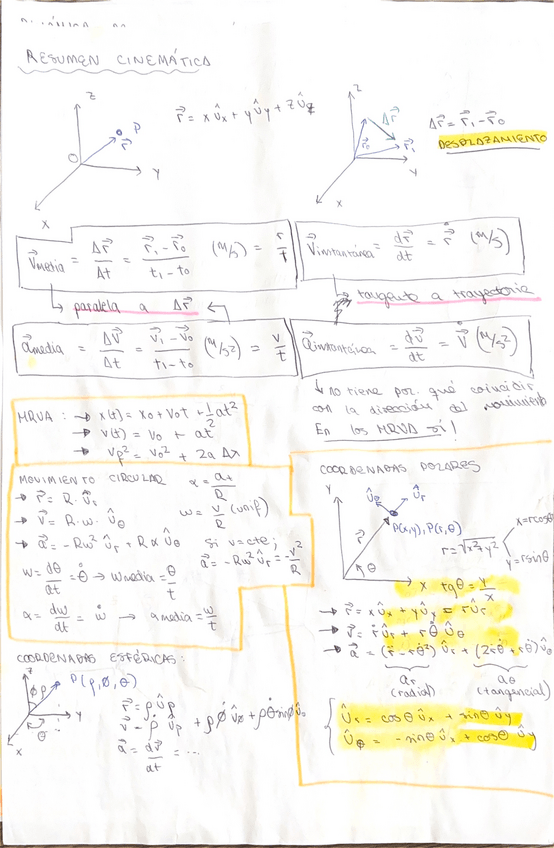 RESUMEN CINEMÁTICA
Z
O
P
r⃗
Y
X
r⃗ = xûx + yûy + zûz
Z
Δr⃗
r⃗0
r⃗1
Y
X
Δr⃗ = r⃗1 - r⃗0
DESPLAZAMIENTO
V⃗media = Δr⃗/Δt = (r⃗1 - r⃗0)/(t1 - t0) (m/s) = r/t
V⃗instantánea = dr⃗/dt = ṙ⃗ (m/s)
↳ paralela a Δr⃗ ←
↳ tangente a trayectoria
a⃗media = ΔV⃗/Δt = (v⃗1 - v⃗0)/(t1 - t0) (m/s²) = v/t
a⃗instantánea = dv⃗/dt = v̇⃗ (m/s²)
↳ no tiene por qué coincidir
con la dirección del movimiento
En los MRVA sí!
MRVA : → x(t) = x0 + v0t + ½at²
→ v(t) = v0 + at
→ vf² = v0² + 2a Δx
MOVIMIENTO CIRCULAR α = at/R
→ r⃗ = R · ûr
ω = v/R (unif)
→ v⃗ = R · ω · ûθ
→ a⃗ = -Rω² ûr + Rα ûθ
si v = cte;
a⃗ = -Rω² ûr = -v²/R
ω = dθ/dt = θ̇ → ωmedia = θ/t
α = dω/dt = ω̇ → αmedia = ω/t
COORDENADAS POLARES
Y
ûθ
ûr
P(x,y), P(r,θ)
r⃗
θ
X
r = √x²+y²
x = rcosθ
y = rsinθ
tgθ = y/x
→ r⃗ = xûx + yûy = rûr
→ v⃗ = ṙûr + rθ̇ ûθ
→ a⃗ = (r̈ - rθ̇²) ûr + (2ṙθ̇ + rθ̈) ûθ
ar
(radial)
aθ
(tangencial)
ûr = cosθ ûx + sinθ ûy
ûθ = -sinθ ûx + cosθ ûy
COORDENADAS ESFÉRICAS :
Z
ϕ ρ
P(ρ, ϕ, θ)
Y
θ
X
r⃗ = ρ ûρ
v⃗ = ρ̇ ûρ + ρϕ̇ ûϕ + ρθ̇ sinϕ ûθ
a⃗ = dv⃗/dt = ...